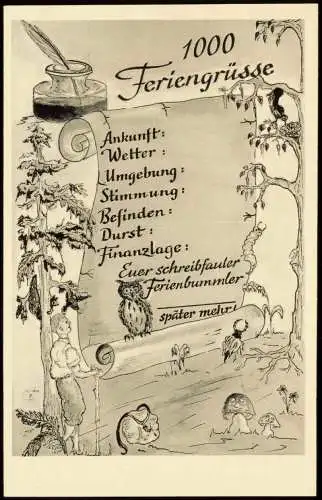 1000
Feriengrüsse
Ankunft:
Wetter:
Umgebung:
Stimmung:
Befinden:
Durst:
Finanzlage:
Euer schreibfauler
Ferienbummler
später mehr!